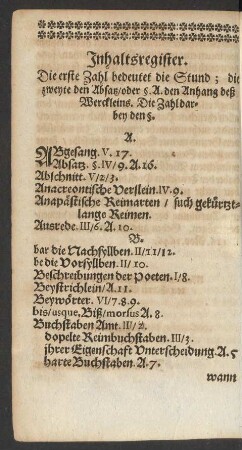 Inhaltsregister.
Die erste Zahl bedeutet die Stund; die
zweyte den Absatz/oder §. A. den Anhang deß
Werckleins. Die Zahl dar-
bey den §.
A.
ABgesang. V. 17.
Absatz. §. IV/9. A. 16.
Abschnitt. V/2/3.
Anacreontische Verslein. IV. 9.
Anapästische Reimarten / such gekürtzt-
lange Reimen.
Ausrede. III/6. A. 10.
B.
bar die Nachsyllben. II/11/12.
be die Vorsyllben. II/10.
Beschreibungen der Poeten. I/8.
Beystrichlein/A. 11.
Beywörter. VI/7.8.9.
bis/usque, Biß/morsus A. 8.
Buchstaben Amt. II/2.
dopelte Reimbuchstaben. III/3.
jhrer Eigenschaft Unterscheidung. A. 5
harte Buchstaben. A. 7.
wann